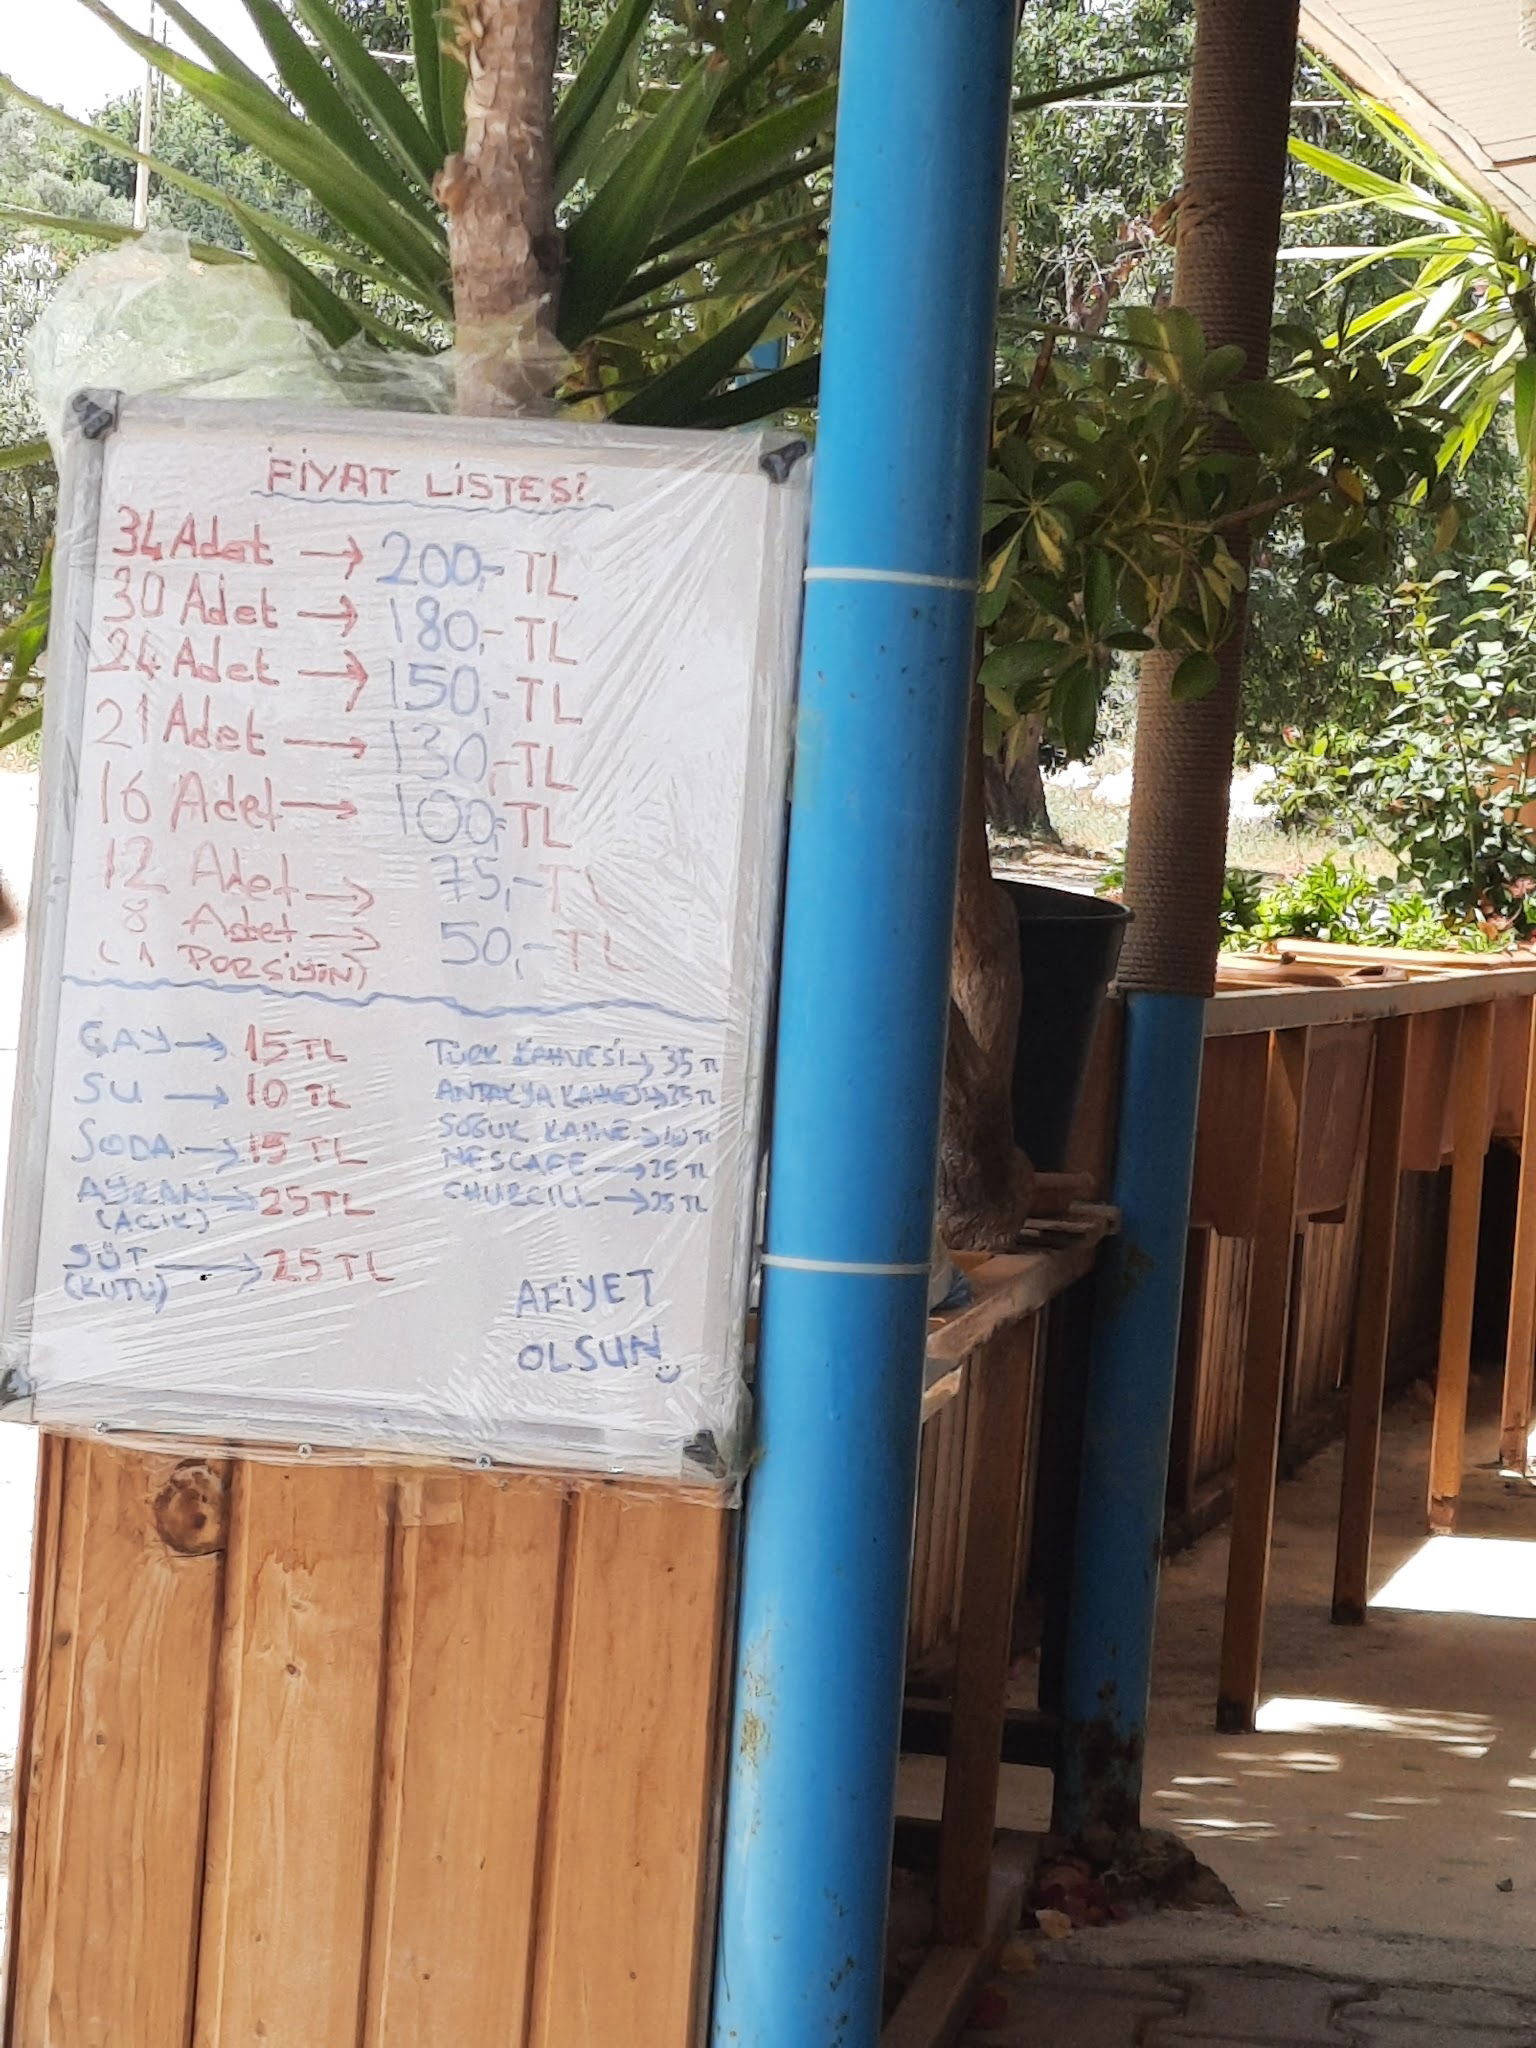 FİYAT LİSTESİ
34 Adet → 200,- TL
30 Adet → 180,- TL
24 Adet → 150,- TL
21 Adet → 130,- TL
16 Adet → 100,- TL
12 Adet → 75,- TL
8 Adet → 50,- TL
(1 PORSİYİN)
ÇAY → 15 TL
SU → 10 TL
SODA → 15 TL
AYRAN → 25 TL
(AÇIK)
SÜT → 25 TL
(KUTU)
TÜRK KAHVESİ → 35 TL
ANTAKYA KAHVESİ → 35 TL
SOĞUK KAHVE → TL
NESCAFE → 35 TL
CHURCILL → TL
AFİYET
OLSUN